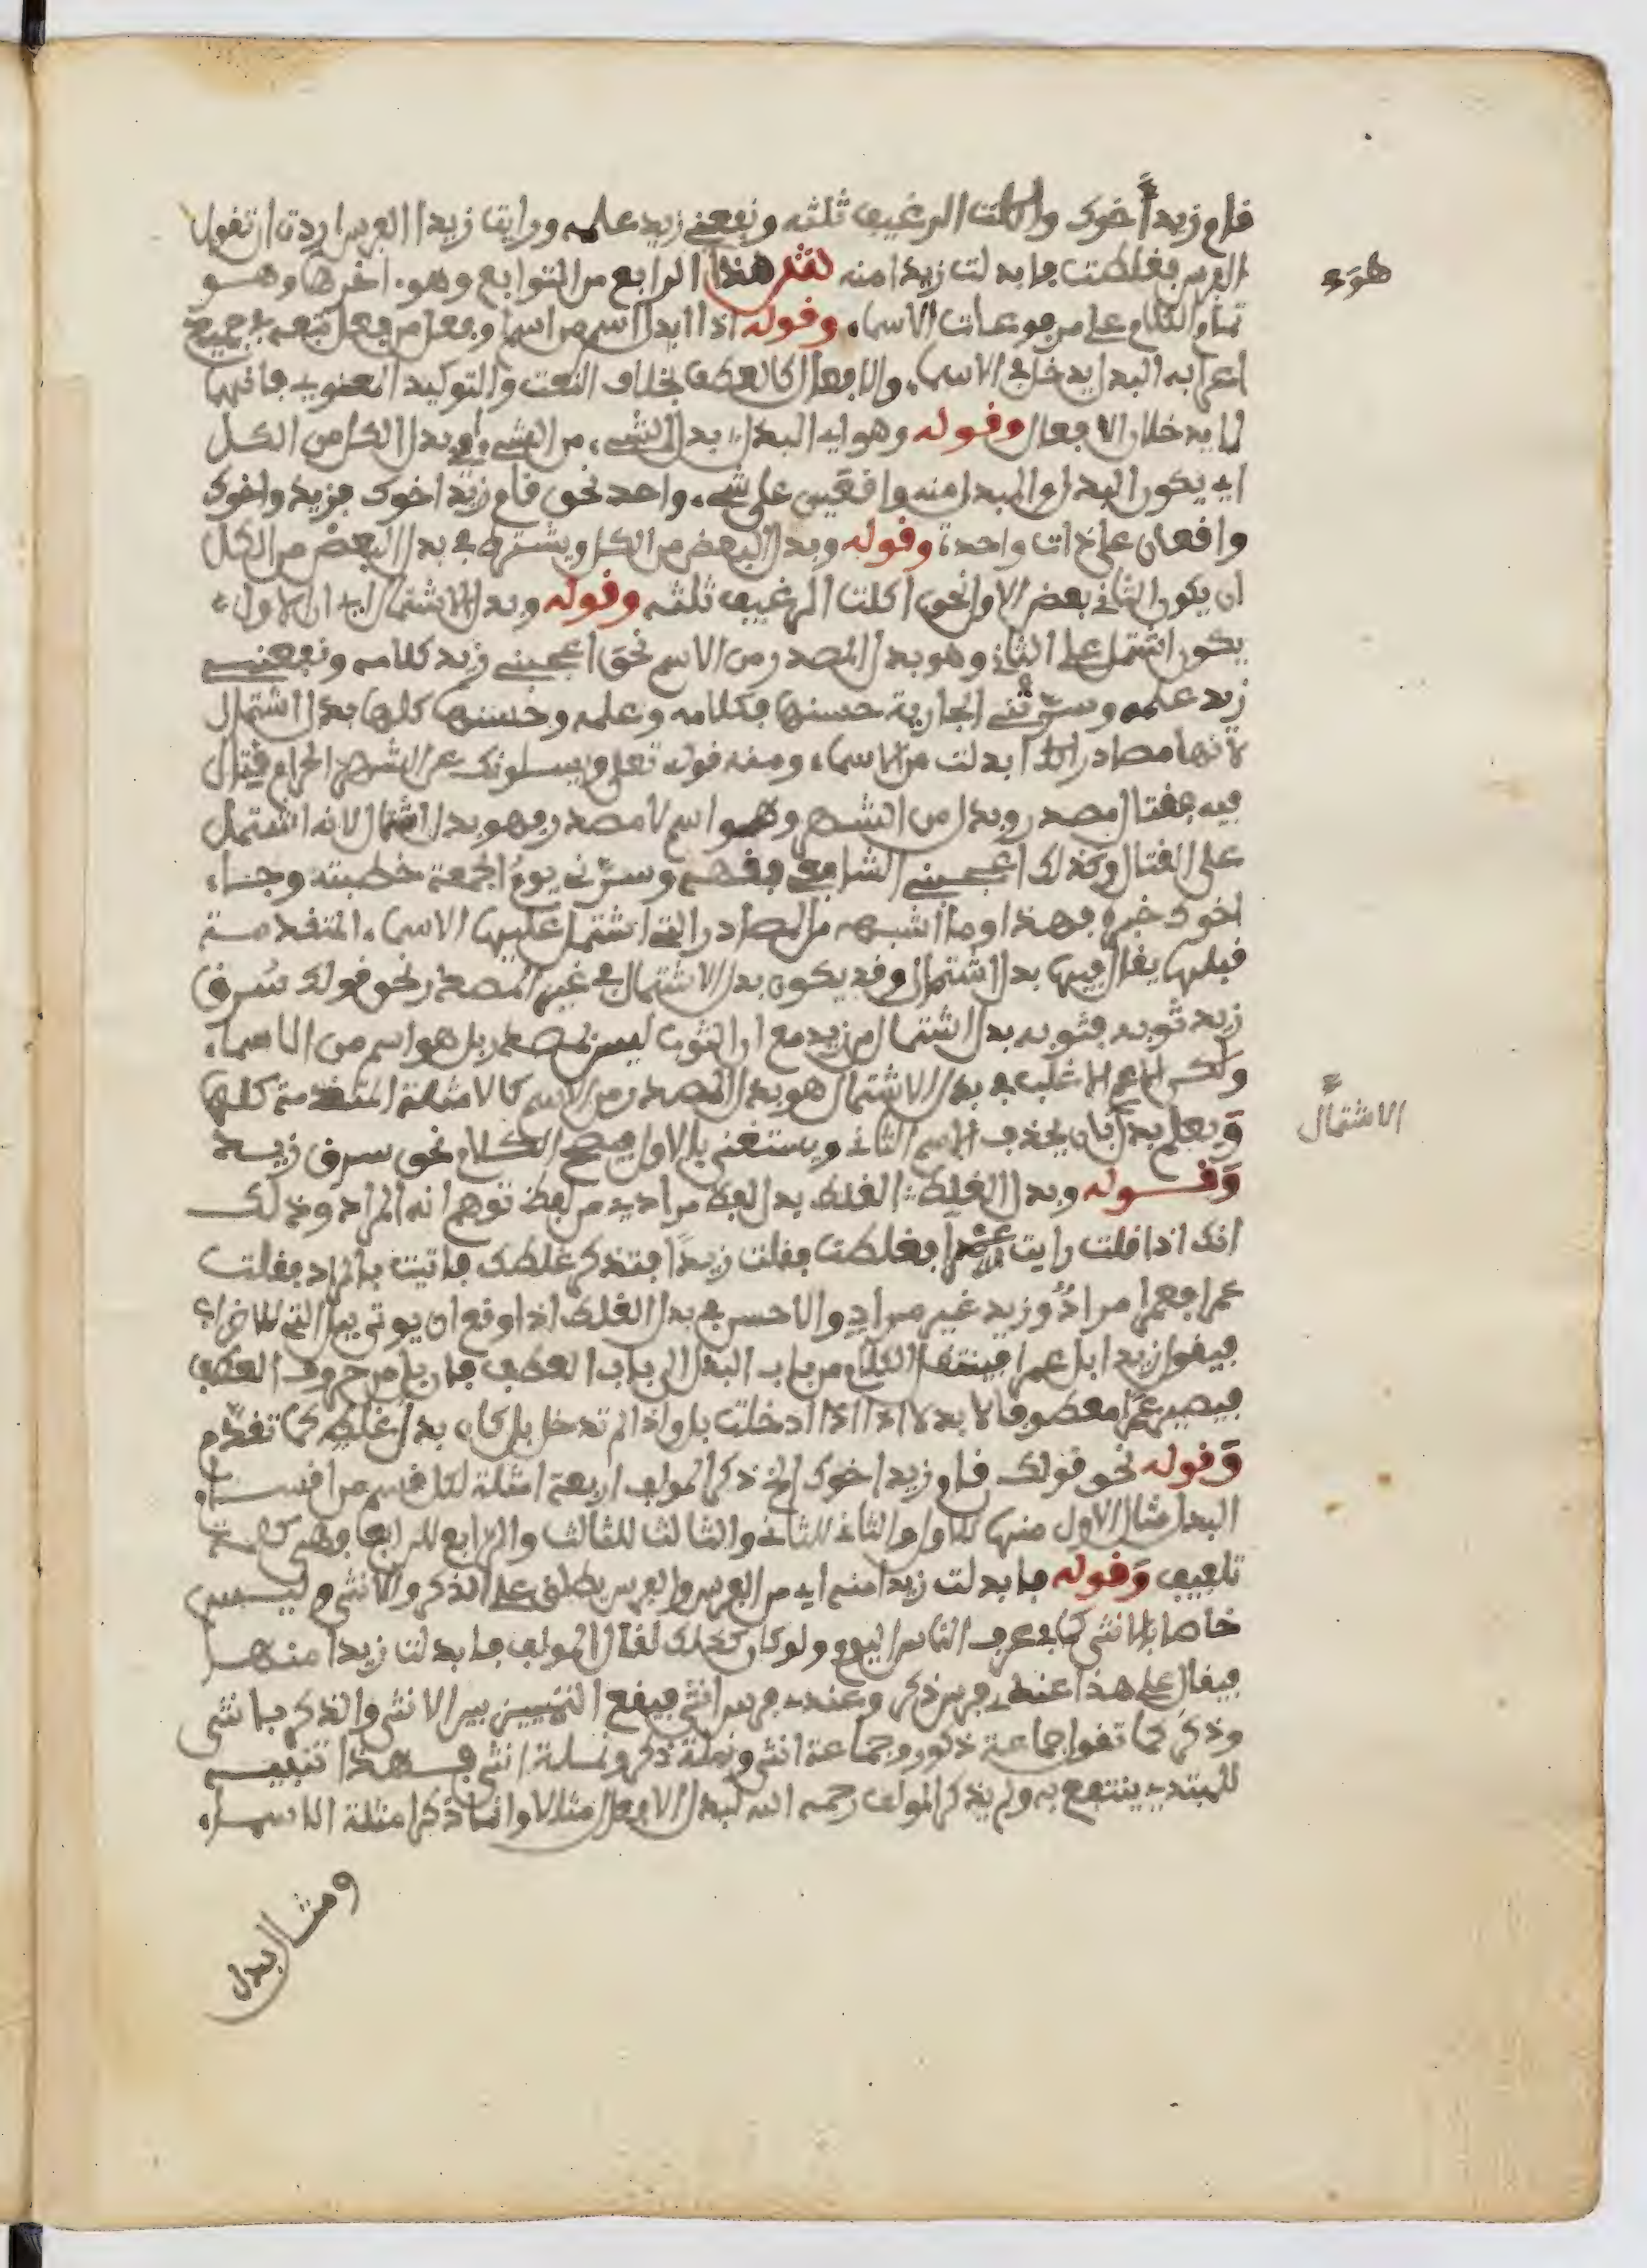 قام زيد أخوك واكلت الرغيف ثلثه ونفعني زيد علمه ورايت زيدا الفرس اردت ان تقول
الفرس فغلطت فابدلت زيدا منه هذا الرابع من التوابع وهو ءاخرها وهو
تمام الكلام على مرفوعات الاسماء وقوله اذا ابدل اسم من اسم او فعل من فعل تبعه في جميع
اعرابه البدل يدخل في الاسماء والافعال كالعطف بخلاف النعت والتوكيد المعنوي فانهما
لا يدخلان الافعال وقوله وهو اي البدل بدل الشيء من الشيء اي بدل الكل من الكل
اي يكون البدل والمبدل منه واقعين على شيء واحد نحو قام زيد اخوك فزيد واخوك
واقعان على ذات واحدة وقوله وبدل البعض من الكل ويشترط في بدل البعض من الكل
ان يكون الثاني بعض الاول نحو اكلت الرغيف ثلثه وقوله وبدل الاشتمال اي ان الاول
يكون اشتمل على الثاني وهو بدل المصدر من الاسم نحو اعجبني زيد كلامه ونفعني
زيد علمه وسرتني الجارية حسنها فكلامه وعلمه وحسنها كلها بدل اشتمال
لانها مصادر ابدلت من الاسماء ومنه قوله تعلى ويسلونك عن الشهر الحرام قتال
فيه فقتال مصدر وبدل من الشهر وهو اسم لا مصدر فهو بدل اشتمال لانه اشتمل
على القتال وكذلك اعجبني الشافعي وسرني يوم الجمعة خطبته وجاء
اخوك خبره فهذا وما اشبهه من المصادر التي اشتمل عليها الاسماء المتقدمة
قبلها يقال فيها بدل اشتمال وقد يكون بدل الاشتمال في غير المصدر نحو قولك سرق
زيد ثوبه فثوبه بدل اشتمال من زيد مع ان الثوب ليس بمصدر بل هو اسم من الاسماء
ولكن الاغلب في بدل الاشتمال هو بدل المصدر من الاسم كالامثلة المتقدمة كلها
ويعلم بدل بان يحذف الاسم الثاني ويستغنى بالاول فيصح الكلام نحو سرق زيد
وقوله وبدل الغلط الغلط بدل لفظ مراد من لفظ توهم انه المراد وذلك
انك اذا قلت رايت عمرا فغلطت فقلت زيدا فتذكر غلطك فاتيت بالمراد فقلت
عمرا فعمرا مراد وزيد غير مراد والاحسن في بدل الغلط اذا وقع ان يوتى ببل التي للاضراب
فيقول زيدا بل عمرا فينتقل الكلام من باب البدل الى باب العطف فان بل من حروف العطف
فيصير عمرا معطوفا لا بدلا اذا ادخلت بل واذا لم تدخل بل كان بدل غلط كما تقدم
وقوله نحو قولك قام زيد اخوك الخ ذكر المولف اربعة امثلة لكل قسم من اقسام
البدل مثال الاول منها للاول والثاني للثاني والثالث للثالث والرابع للرابع
تلفيف وقوله فابدلت زيدا منه اي من الفرس والفرس يطلق على الذكر والانثى وليس
خاصا بالانثى كما في عرف الناس اليوم ولو كان كذلك لقال المولف فابدلت زيدا منها
فيقال على هذا عندي فرس ذكر وعندي فرس انثى فيقع التمييز بين الانثى والذكر بانثى
وذكر كما تقول حمامة ذكر وحمامة انثى ونملة ذكر ونملة انثى فهذا تنبيه
للمبتدي ينتفع به ولم يذكر المولف رحمه الله لبدل الافعال مثالا وانما ذكر امثلة الاسماء
ومثال بدل
طرة
الاشتمال